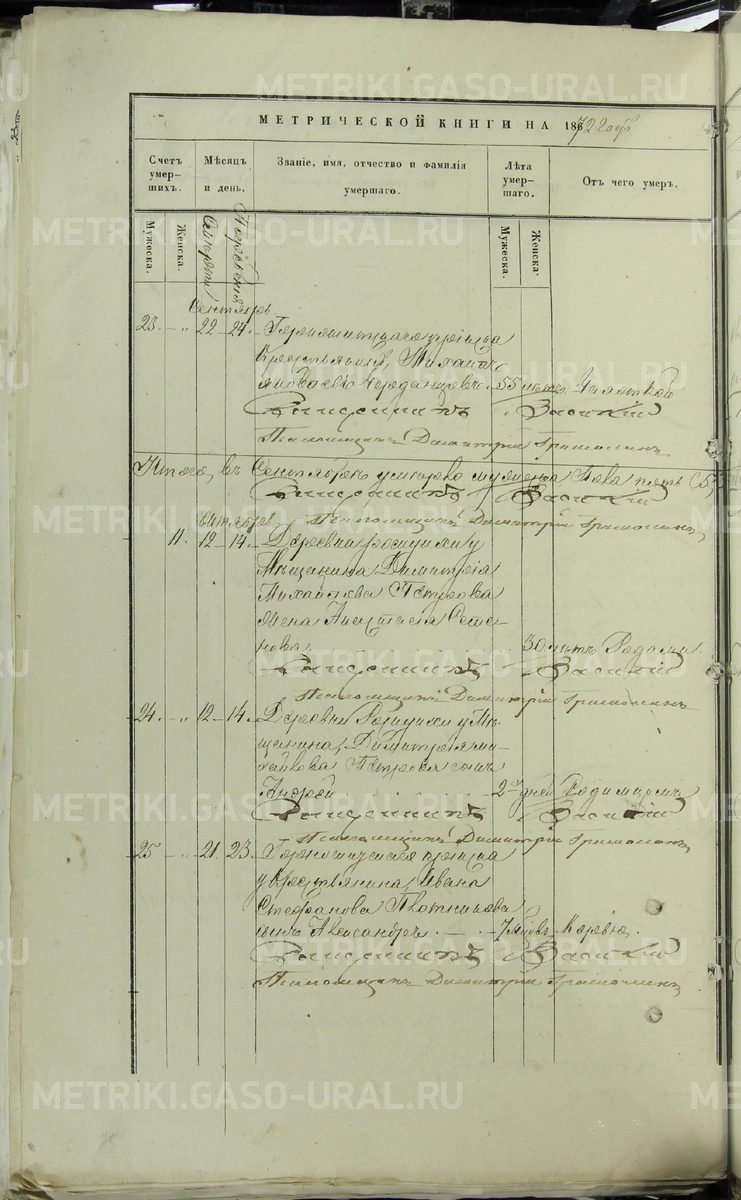 МЕТРИЧЕСКОЙ КНИГИ НА 1872 годъ
Счетъ умер-шихъ.
Мѣсяцъ и день.
Званіе, имя, отчество и фамилія умершаго.
Лѣта умер-шаго.
Отъ чего умеръ.
Мужеска.
Женска.
Смерти
Погребенія
Мужеска.
Женска.
Сентябрь
23. 22 24.
Крестьянинъ, Михаилъ
55 лѣтъ Чахоткой
Священникъ Василій
Псаломщикъ Димитрій
Итого въ Сентябрѣ умерло мужеска пола пять (5)
Священникъ Василій
Псаломщикъ Димитрій
Октябрь
11. 12 14. Деревни у
Мѣщанина Димитрія
Михайлова Петрова
жена Анастасія
30 лѣтъ Родами
Священникъ Василій
Псаломщикъ Димитрій
24. 12 14. Деревни у Мѣ-
щанина, Димитрія Ми-
хайлова Петрова сынъ
Андрей 2 дней Родимцомъ
Священникъ Василій
Псаломщикъ Димитрій
25 21. 23.
у Крестьянина, Ивана
Стефанова Плотникова
сынъ Александръ 7 Корью.
Священникъ Василій
Псаломщикъ Димитрій
METRIKI.GASO-URAL.RU